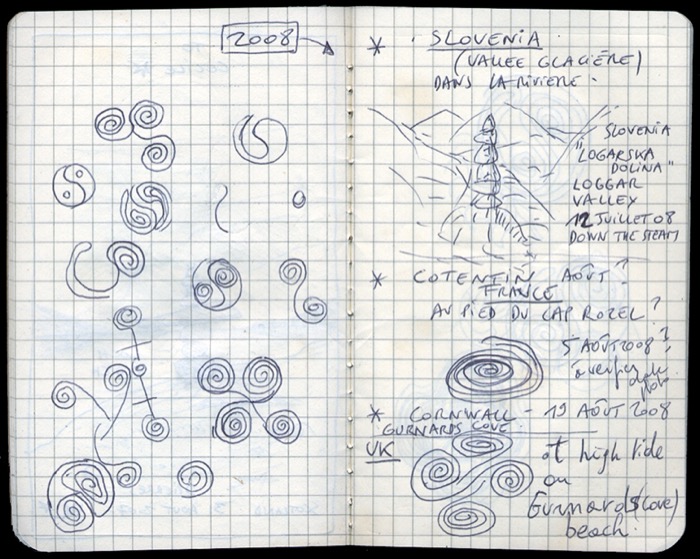 2008
* SLOVENIA
(VALLEE GLACIÈRE)
DANS LA RIVIERE.
SLOVENIA
"LOGARSKA
DOLINA"
LOGGAR
VALLEY
12 JUILLET 08
DOWN THE STEAM
* COTENTIN AOÛT?
FRANCE
AU PIED DU CAP ROZEL?
5 AOÛT 2008?
* CORNWALL - 19 AOÛT 2008
GURNARDS COVE.
UK
at high tide
on
Gurnards (Cove)
beach.